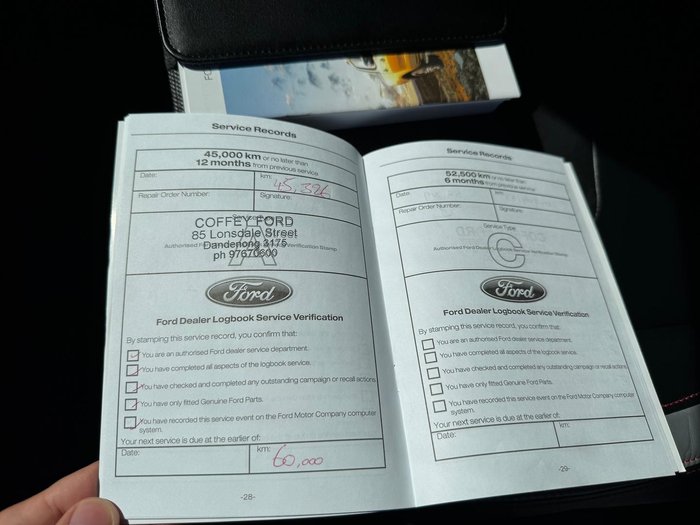 FO
Service Records
45,000 km or no later than
12 months from previous service
Date:
km:
45,396
Repair Order Number:
Signature:
COFFEY FORD
85 Lonsdale Street
Dandenong 3175
ph 97670600
A
Ford
Ford Dealer Logbook Service Verification
By stamping this service record, you confirm that:
You are an authorised Ford dealer service department.
You have completed all aspects of the logbook service.
You have checked and completed any outstanding campaign or recall actions.
You have only fitted Genuine Ford Parts.
You have recorded this service event on the Ford Motor Company computer
system.
Your next service is due at the earlier of:
Date:
km:
60,000
-28-
Service Records
52,500 km or no later than
6 months from previous service
Date:
km:
Repair Order Number:
Signature:
Service Type
C
Authorised Ford Dealer Logbook Service Verification Stamp
Ford
Ford Dealer Logbook Service Verification
By stamping this service record, you confirm that:
You are an authorised Ford dealer service department.
You have completed all aspects of the logbook service.
You have checked and completed any outstanding campaign or recall actions.
You have only fitted Genuine Ford Parts.
You have recorded this service event on the Ford Motor Company computer
system.
Your next service is due at the earlier of:
Date:
km:
-29-